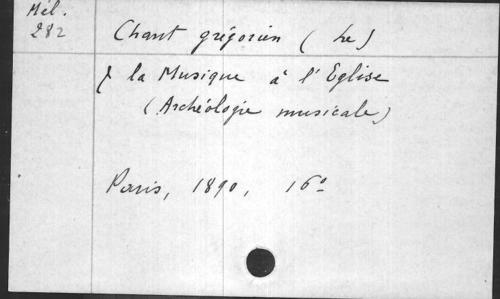 Mél.
282
Chant grégorien (Le)
& la Musique à l'Eglise
(Archéologie musicale)
Paris, 1890, 16º